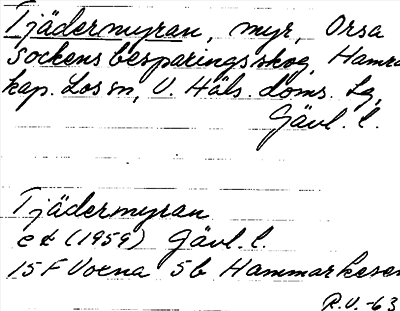 Tjädermyran, myr, Orsa
Sockens besparingsskog, Hamra
kap. Los sn, V. Häls. doms. Lg,
Gävl. l.
Tjädermyran
ek (1959) Gävl. l.
15F Voxna 5b Hammarkesen
R.V.-63